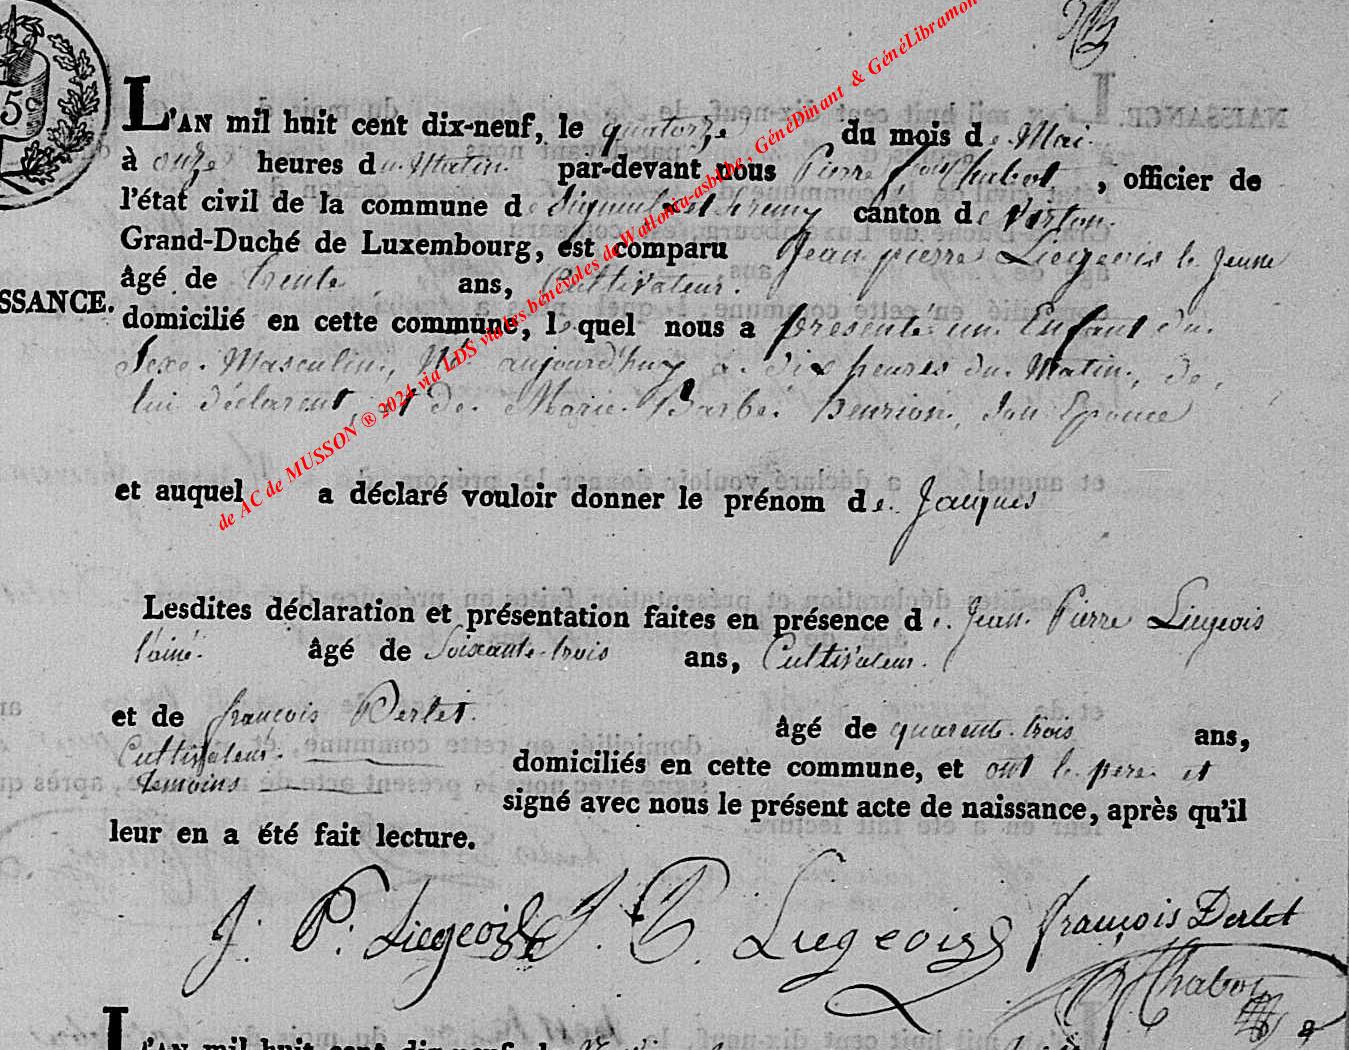 5
NAISSANCE.
L'AN mil huit cent dix-neuf, le quatorze du mois de Mai.
à onze heures du Matin. par-devant nous Pierre Chabot, officier de
l'état civil de la commune de Signeulx et canton de Virton.
Grand-Duché de Luxembourg, est comparu Jean pierre Liegeois le Jeune
âgé de trente ans, Cultivateur.
SSANCE.
domicilié en cette commune, lequel nous a presenté un Enfant du
Sexe Masculin, Né aujourd'huy à dix heures du Matin, de
lui déclarant, et de Marie Barbe henrion, son Epouce
et auquel a déclaré vouloir donner le prénom de Jacques
de AC de MUSSON ® 2024 via LDS via les bénévoles de Wallonia-asbl.be, GénéDinant & GénéLibramon
Lesdites déclaration et présentation faites en présence de Jean Pierre Liegeois
l'ainé. âgé de Soixante-trois ans, Cultivateur.
et de françois Derlet. âgé de quarente-trois ans,
Cultivateur. domiciliés en cette commune, et ont le pere et
temoins signé avec nous le présent acte de naissance, après qu'il
leur en a été fait lecture.
J. P. Liegeois J. P. Liegeois françois Derlet
Chabot
L'AN mil huit cent dix-neuf, le du mois d